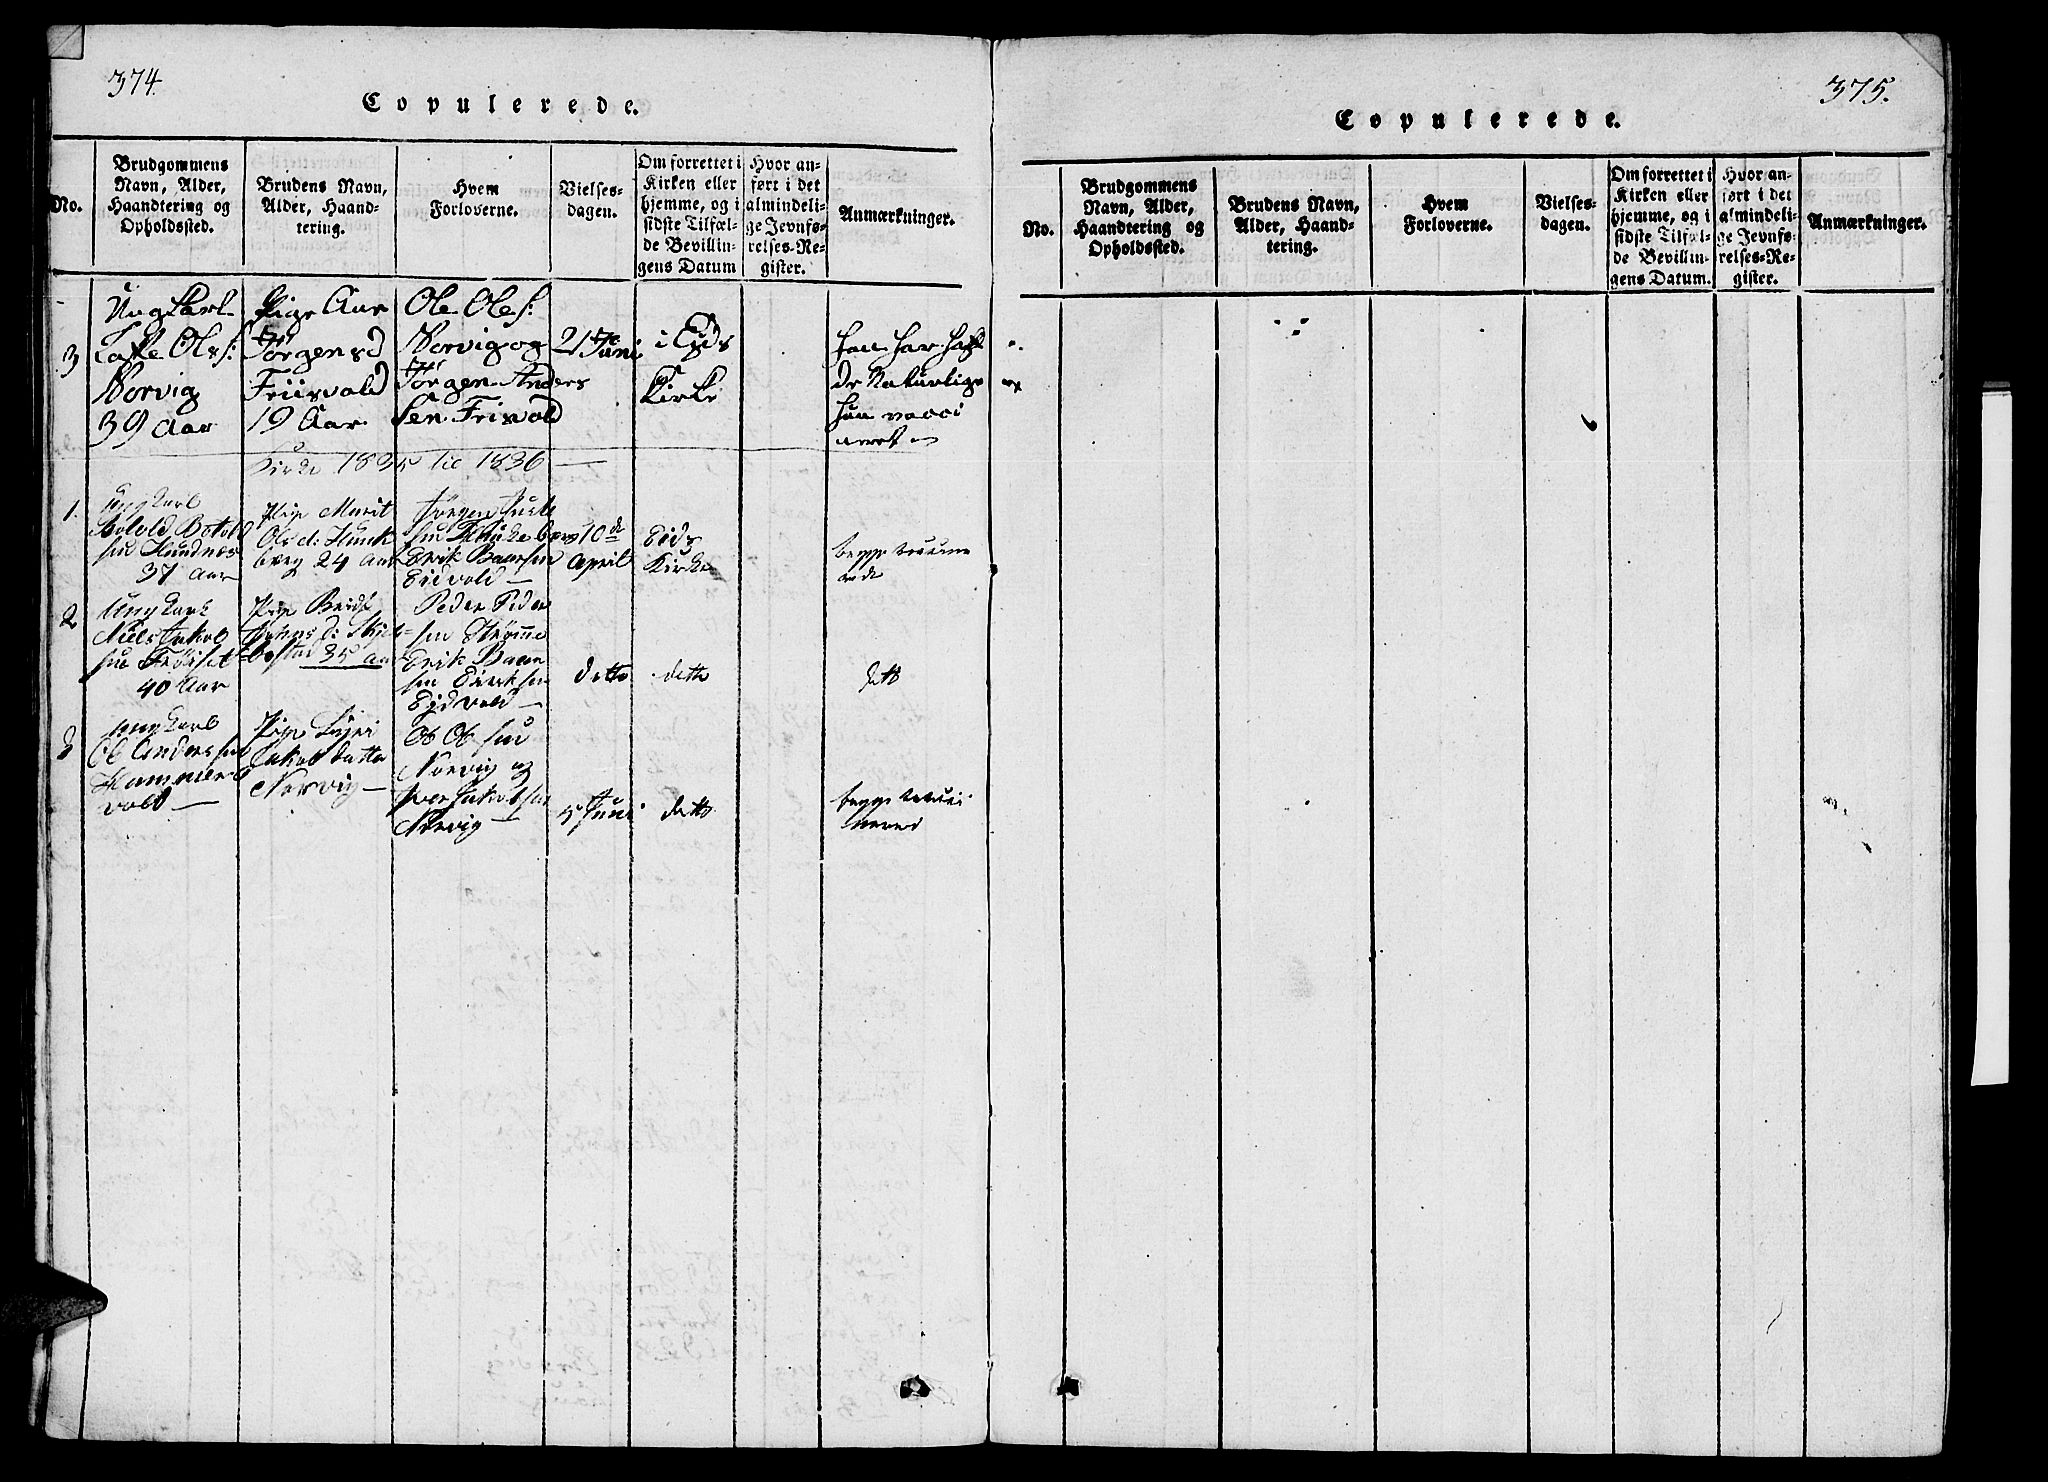 374.
Copulerede.
No.
Brudgommens
Navn, Alder,
Haandtering og
Opholdssted.
Brudens Navn,
Alder, Haand-
tering.
Hvem
Forloverne.
Vielses-
dagen.
Om forrettet i
Kirken eller
hjemme, og i
sidste Tilfæl-
de Bevillin-
gens Datum
Hvor an-
ført i det
almindeli-
ge Jevnfø-
relses-Re-
gister.
Anmærkninger.
3
Ungkarl
Olss:
Norvig
39 Aar
Pige
Jørgensd
Friisvold
19 Aar
Ole Oles:
Norvig og
Jørgen Anders
Sen Frisvold
21 Juni
i Eids
Kirke
han har haft
de Naturlige
hun vacci
neret
1835 til 1836
1.
Ungkarl
Botolv Botolv
sen Hundnes
37 Aar
Pige Marit
Ols d:
berg 24 Aar
Jørgen
sen
Erik
Eidvold
10 de
April
Eids
Kirke
begge vaccine
rede
2
Ungkarl
Niels Jakob
sen Frøiset
40 Aar
Pige
35 Aar
Peder Peder
sen Strømme
Erik
sen Eriksen
Eidvold
detto
dette
dette
3
Ungkarl
Ole Anderssen
Hammer
vold
Pige
Jakobsdatter
Norvig
Ole Olesen
Norvig og
Iver Jakobsen
Norvig
5 Juni
dette
begge vacci
nered
375.
Copulerede.
No.
Brudgommens
Navn, Alder,
Haandtering og
Opholdssted.
Brudens Navn,
Alder, Haand-
tering.
Hvem
Forloverne.
Vielses-
dagen.
Om forrettet i
Kirken eller
hjemme, og i
sidste Tilfæl-
de Bevillin-
gens Datum.
Hvor an-
ført i det
almindeli-
ge Jevnfø-
relses-Re-
gister.
Anmærkninger.